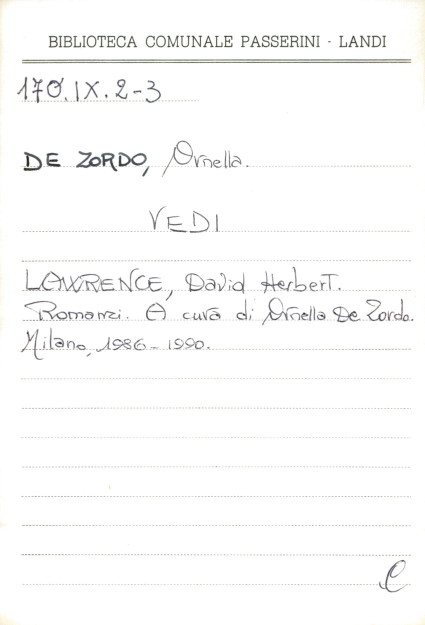 BIBLIOTECA COMUNALE PASSERINI - LANDI
170.IX.2-3
DE ZORDO, Ornella.
VEDI
LAWRENCE, David Herbert.
Romanzi. A cura di Ornella De Zordo.
Milano, 1986-1990.
C